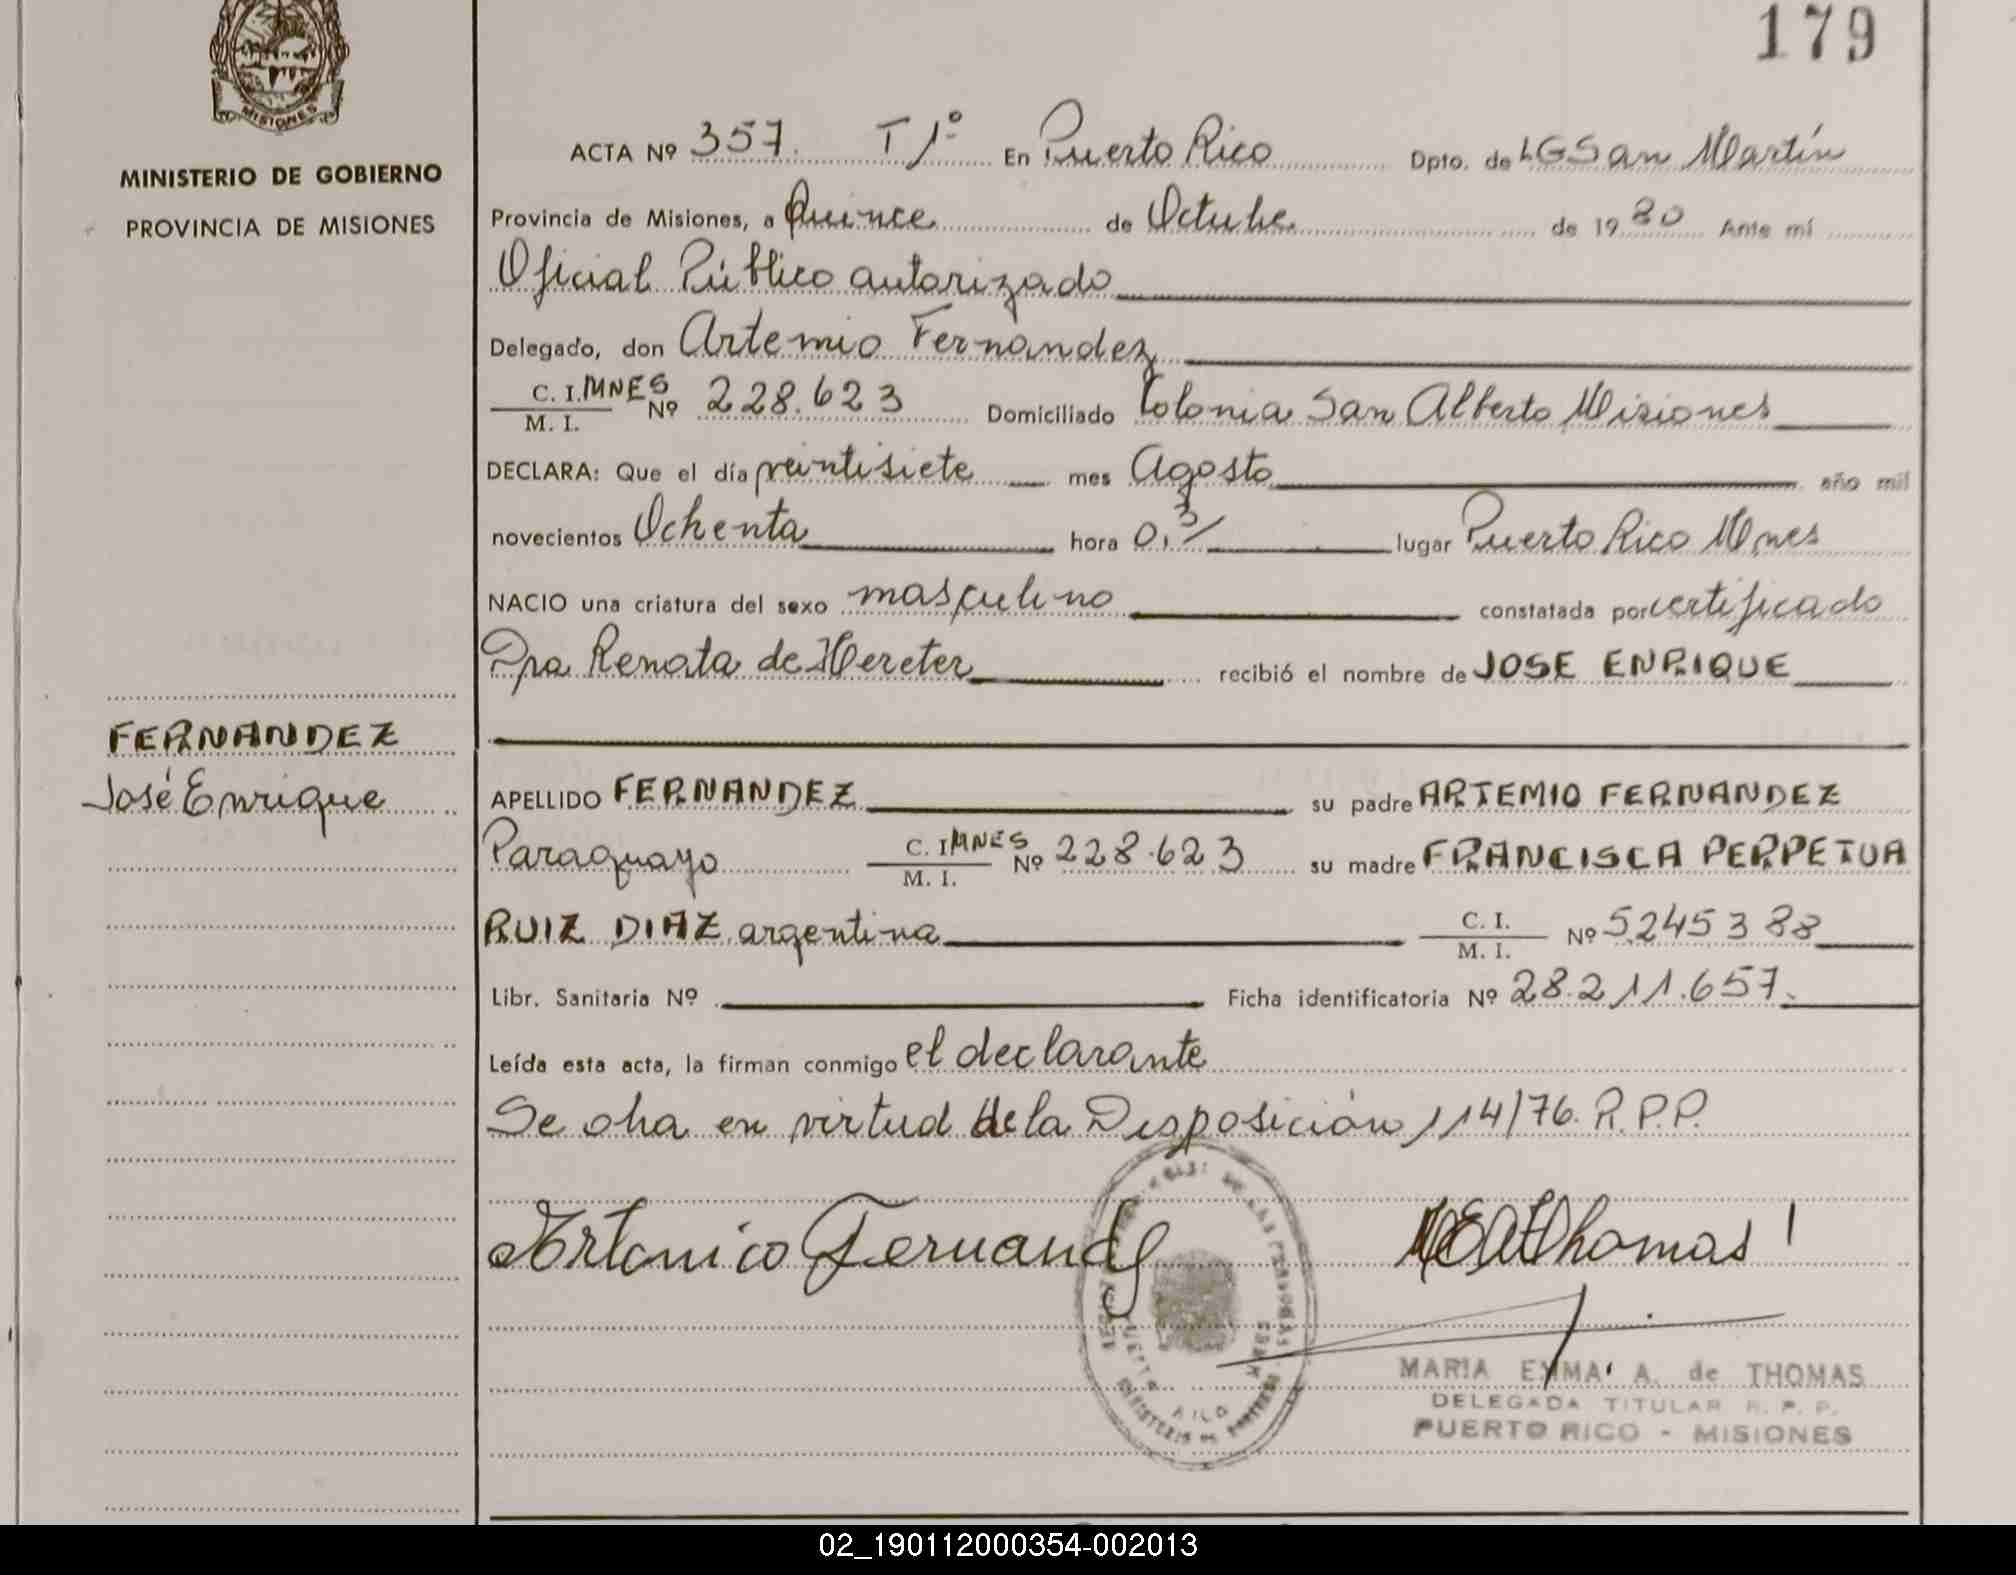 179
MISIONES
MINISTERIO DE GOBIERNO
PROVINCIA DE MISIONES
FERNANDEZ
José Enrique
ACTA Nº 357. T 1º En Puerto Rico Dpto. de LGSan Martín
Provincia de Misiones, a Quince de Octubre de 1980 Ante mí
Oficial Público autorizado
Delegado, don Artemio Fernandez
C. I. MNES
M. I. Nº 228.623 Domiciliado Colonia San Alberto Misiones
DECLARA: Que el día veintisiete mes Agosto año mil
novecientos Ochenta hora 0,3/ lugar Puerto Rico Mnes
NACIO una criatura del sexo masculino constatada por certificado
Dra Renata de Hereter recibió el nombre de JOSE ENRIQUE
APELLIDO FERNANDEZ su padre ARTEMIO FERNANDEZ
Paraguayo C. I. MNES M. I. Nº 228.623 su madre FRANCISCA PERPETUA
RUIZ DIAZ argentina C. I. M. I. Nº 5.245388
Libr. Sanitaria Nº Ficha identificatoria Nº 28.211.657.
Leída esta acta, la firman conmigo el declarante
Se oha en virtud de la Disposición 114/76. R.P.P.
MARIA EMMA A. de THOMAS
DELEGADA TITULAR R. P. P.
PUERTO RICO - MISIONES
02_190112000354-002013